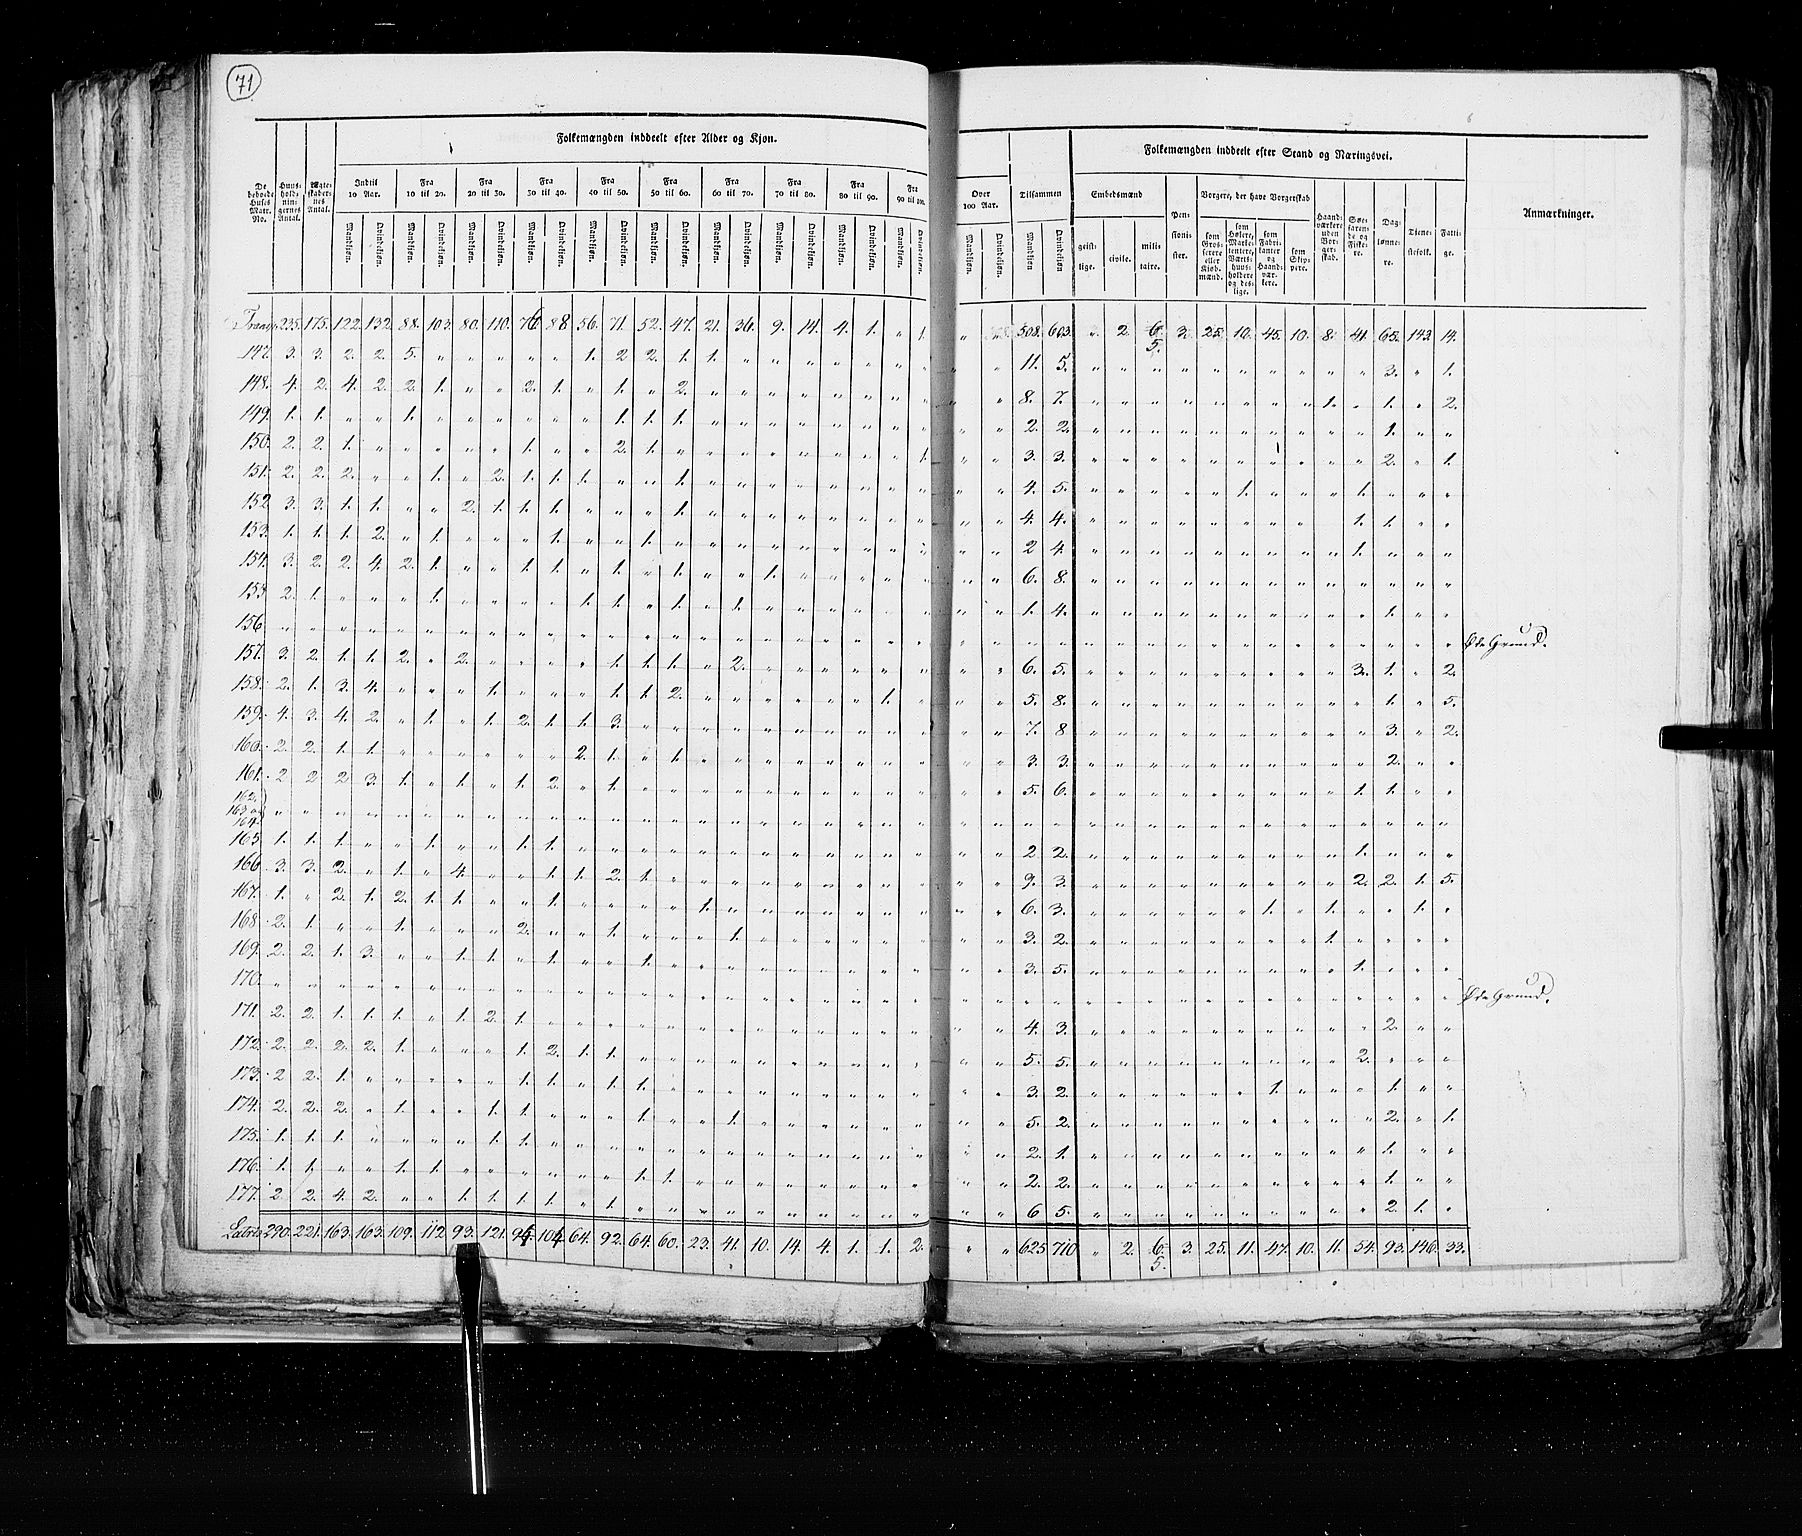 71
Folkemængden inddeelt efter Alder og Kjøn.
Folkemængden inddeelt efter Stand og Næringsvei.
De beboede Huses Matr. No.
Huus-holdnin-gernes Antal.
Ægte-skaber-nes Antal.
Indtil 10 Aar.
Fra 10 til 20.
Fra 20 til 30.
Fra 30 til 40.
Fra 40 til 50.
Fra 50 til 60.
Fra 60 til 70.
Fra 70 til 80.
Fra 80 til 90.
Fra 90 til 100.
Over 100 Aar.
Tilsammen
Embedsmænd
Pen-sioni-ster.
Borgere, der have Borgerskab
Haand-værkere uden Bor-ger-skab.
Søe-farende og Fiske-re.
Dag-lønne-re.
Tiene-stefolk.
Fatti-ge.
Anmærkninger.
Mandkjøn. Qvindekjøn.
geist-lige. civile. mili-taire.
som Gros-serere eller Kjøb-mænd.
som Høkere, Marke-tentere, Værts-huus-holdere og des-lige.
som Fabri-kanter og Haand-vær-kere.
som Skip-pere.
235. 175. 122. 132. 88. 103. 80. 110. 76 88 56. 71. 52. 47. 21. 36. 9. 14. 4. 1. " 1. " " 508. 603. " 2. 6 5. 3. 25. 10. 45. 10. 8. 41. 65. 143. 14.
147. 3. 3. 2. 2. 5. " " " " " " 1. 2 2. 1. 1. " " " " " " " " 11. 5. 3. " 1.
148. 4. 2. 4. 2. 2. 1. " " 2. 1. " 1. " 2. 8. 7. 1. " 1. " 2.
149. 1. 1. " " 1. 1. 1. 1. 2. 2. 1. " "
150. 2. 2. 1. 1. " " 2. 1. 1. 3. 3. 2. " 1.
151. 2. 2. 2. " " 1. " 2. 1. 1. 1. " " " 1. 4. 5. 1. 1. " " "
152 3. 3. 1. 1. " " 2. 1. 1. 1. " " " 1. 4. 4. 1. 1. " "
153. 1. 1. 1. 2. " 1. " " " 1. " " 1. 2 4. 1. " " "
154. 3. 2. 2. 4. 2. 1. " " 1. 1. " 1. " 1. " " 1. 6. 8.
155 2. 1. " " " 1. 1. 1. " 1. " 1. 1. 4. 1. " "
156 Øde Grund.
157. 3. 2. 1. 1. 2. " 2. 1. 1. 1. " 2. 6. 5. 3. 1. " 2.
158. 2. 1. 3. 4. " " " 1. 1. 1. 2. 1. 5. 8. 1. " 5.
159. 4. 3. 4. 2. " 1. " 1. 2. 1. 1. 3. 7. 8 3. " 2.
160. 2. 2. 1. 1. 2. 1. " 1. 3. 3. 2. " "
161. 2 2 2 3. 1. " 1. " 1. 2. " 1. 5. 6. 1. 1. " "
162.
163 og
164
165 1. 1. 1. " " 1. " " 1. 1. 2 2. 1. " " "
166 3. 3. 2. " 1. " 4. " " 1. 1. 2. 1. 9. 3. 2. 2. 1. 5.
167. 1. " 2. 1. 2. 1. 1. " " 1. 1. 6. 3. 1. " 1. " " 1. "
168 2. 1. " " 1. " " " 2. " " 1. 1. 3. 2. 1. " " " "
169. 2. 2. 1. 3. " " 1. 1. " 1. " " 1. 3. 5. 1. " " "
170. Øde Grund.
171. 2. 2. 1. 1. 1. " 1. 2. 1. 4. 3. 2. " "
172. 2. 2. 2. 2. 1. " " " 1. 2. 1. 1. 5. 5. 2. " " "
173. 2 2. 1. 1. 1. " 1. 1. 3. 2. 1. 1. " "
174. 2. 2. 2. " 1. " " 1. 1. 1. 1. 5. 2. 2. " 1.
175. 1. 1. 1. 1. 1. 2. 1. 1. " "
176. 1. 1. " " 1. 1. 1. 1. 2. 2. 1. " "
177. 2. 2. 4. 2. " " 1. 1. 1. 1. " 1. 6 5. 2. 1. "
290. 221. 163. 163. 109. 112 93. 121. 94. 104 64. 92. 64. 60. 23. 41. 10. 14. 4. 1. 1. 2. " " 625 710 " 2. 6. 5. 3. 25. 11. 47. 10. 11. 54. 93. 146. 33.